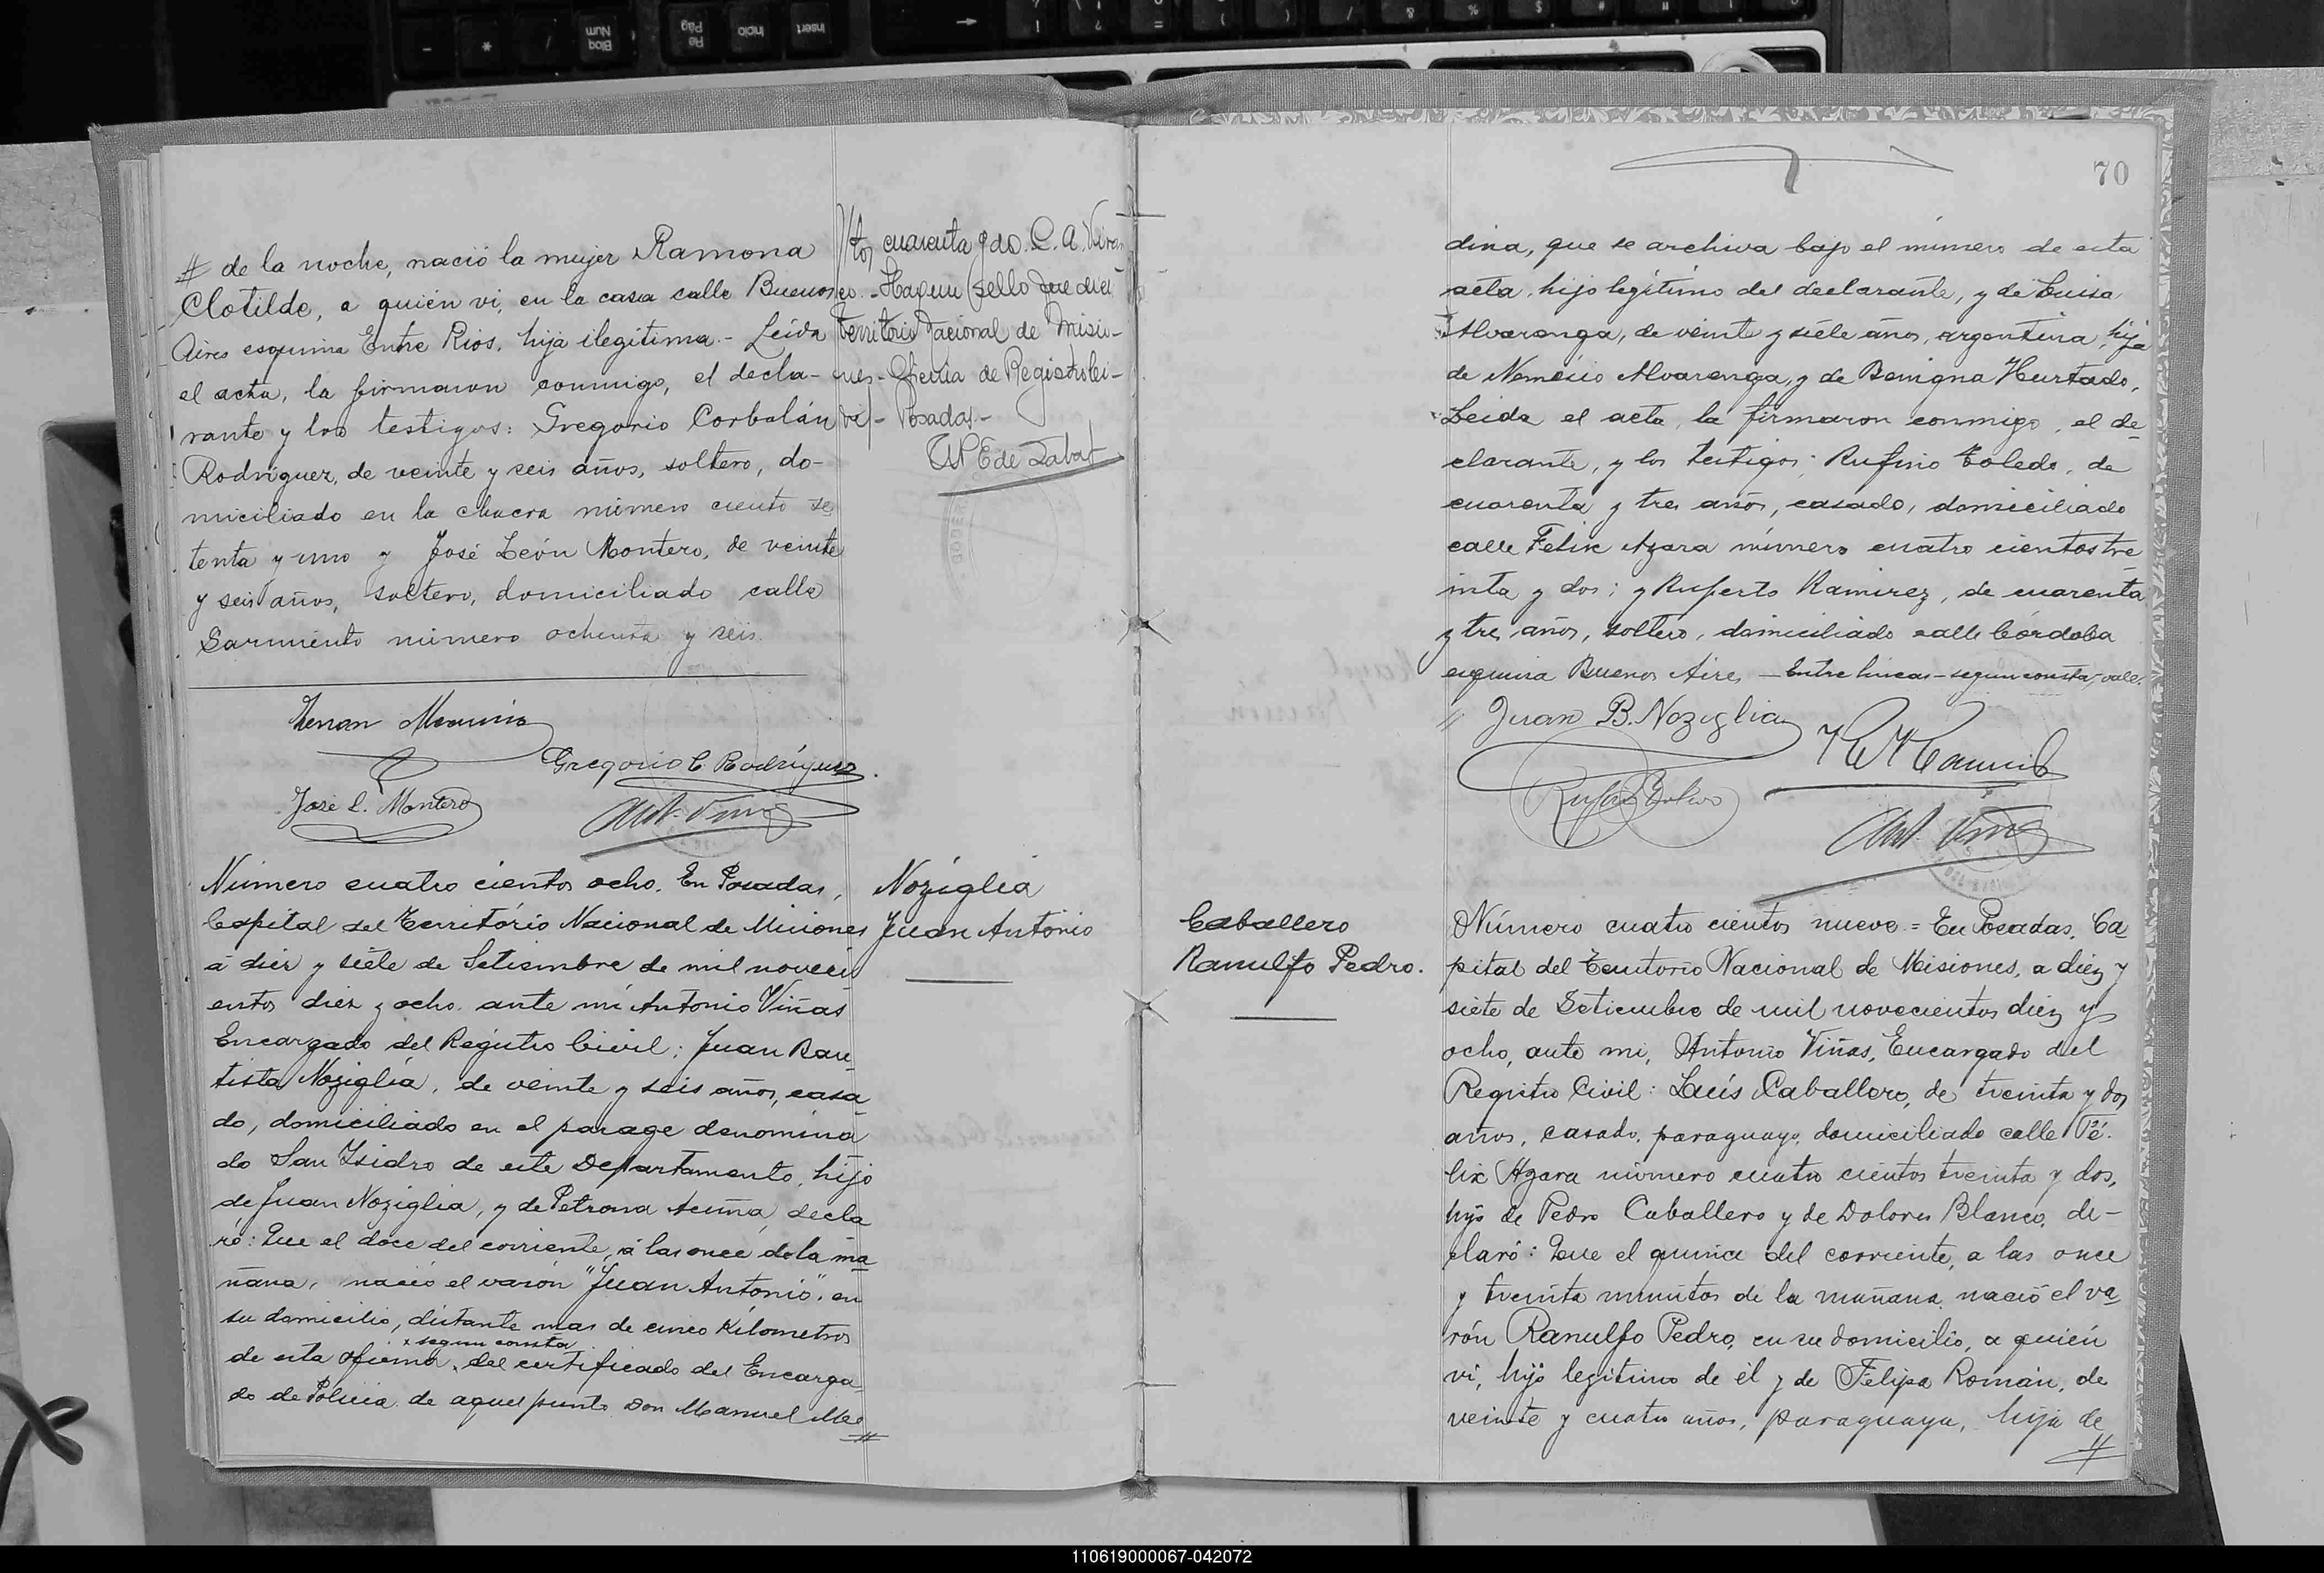 de la noche, nació la mujer Ramona
Clotilde, a quién vi, en la casa calle Buenos
Aires esquina Entre Rios, hija ilegítima.- Leída
el acta, la firmaron conmigo, el decla-
rante y los testigos: Gregorio Corbalán
Rodríguez, de veinte y seis años, soltero, do-
miciliado en la chacra número ciento se
tenta y uno y José León Montero, de veinte
y seis años, soltero, domiciliado calle
Sarmiento número ochenta y seis.
Gregorio C. Rodríguez
José L. Montero
Ant. Viñas
cuarenta
territorio Nacional de Misio-
nes- Oficina de Registro Ci-
vil- Posadas-
Número cuatro cientos ocho. En Posadas,
Capital del Território Nacional de Misiones
á diez y siete de Setiembre de mil noveci
entos diez y ocho. ante mí Antonio Viñas
Encargado del Registro Civil; Juan Bau
tista Noziglia, de veinte y seis años, casa-
do, domiciliado en el parage denomina
do San Isidro de este Departamento, hijo
de Juan Noziglia, y de Petrona Acuña, decla
ró: Que el doce del corriente, á las once de la ma
ñana, nació el varón "Juan Antonio", en
su domicilio, distante mas de cinco Kilometros
x segun consta
de esta oficina x del certificado del Encarga
do de Policia de aquel punto Don Manuel Me
Noziglia
Juan Antonio
70
dina, que se archiva bajo el número de esta
acta, hijo legítimo del declarante, y de Luisa
Alvarenga, de veinte y siéte años, argentina, hija
de Nemésio Alvarenga, y de Benigna Hurtado,
Leida el acta, la firmaron conmigo, el de-
clarante, y los testigos; Rufino Toledo, de
cuarenta y tres años, casado, domiciliado
calle Felix Azara número cuatro cientos tre
inta y dos; y Ruperto Ramirez, de cuarenta
y tres años, soltero, domiciliado calle Córdoba
esquina Buenos Aires - Entre lineas - segun consta, vale.
Juan B. Noziglia
Ant. Viñas
Caballero
Ranulfo Pedro.
Número cuatro cientos nueve = En Posadas, Ca
pital del Territorio Nacional de Misiones, a diez y
siete de Setiembre de mil novecientos diez y
ocho, ante mi, Antonio Viñas, Encargado del
Registro Civil: Luís Caballero, de treinta y dos
años, casado, paraguayo, domiciliado calle Fé-
lix Azara número cuatro cientos treinta y dos,
hijo de Pedro Caballero y de Dolores Blanco, de-
claró: Que el quince del corriente, a las once
y treinta minutos de la mañana, nació el va
rón Ranulfo Pedro, en su domicilio, a quién
vi, hijo legítimo de él y de Felipa Román, de
veinte y cuatro años, paraguaya, hija de
110619000067-042072